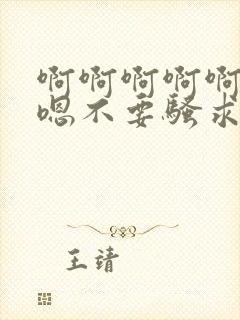 啊啊啊啊啊
嗯不要骚求
王靖